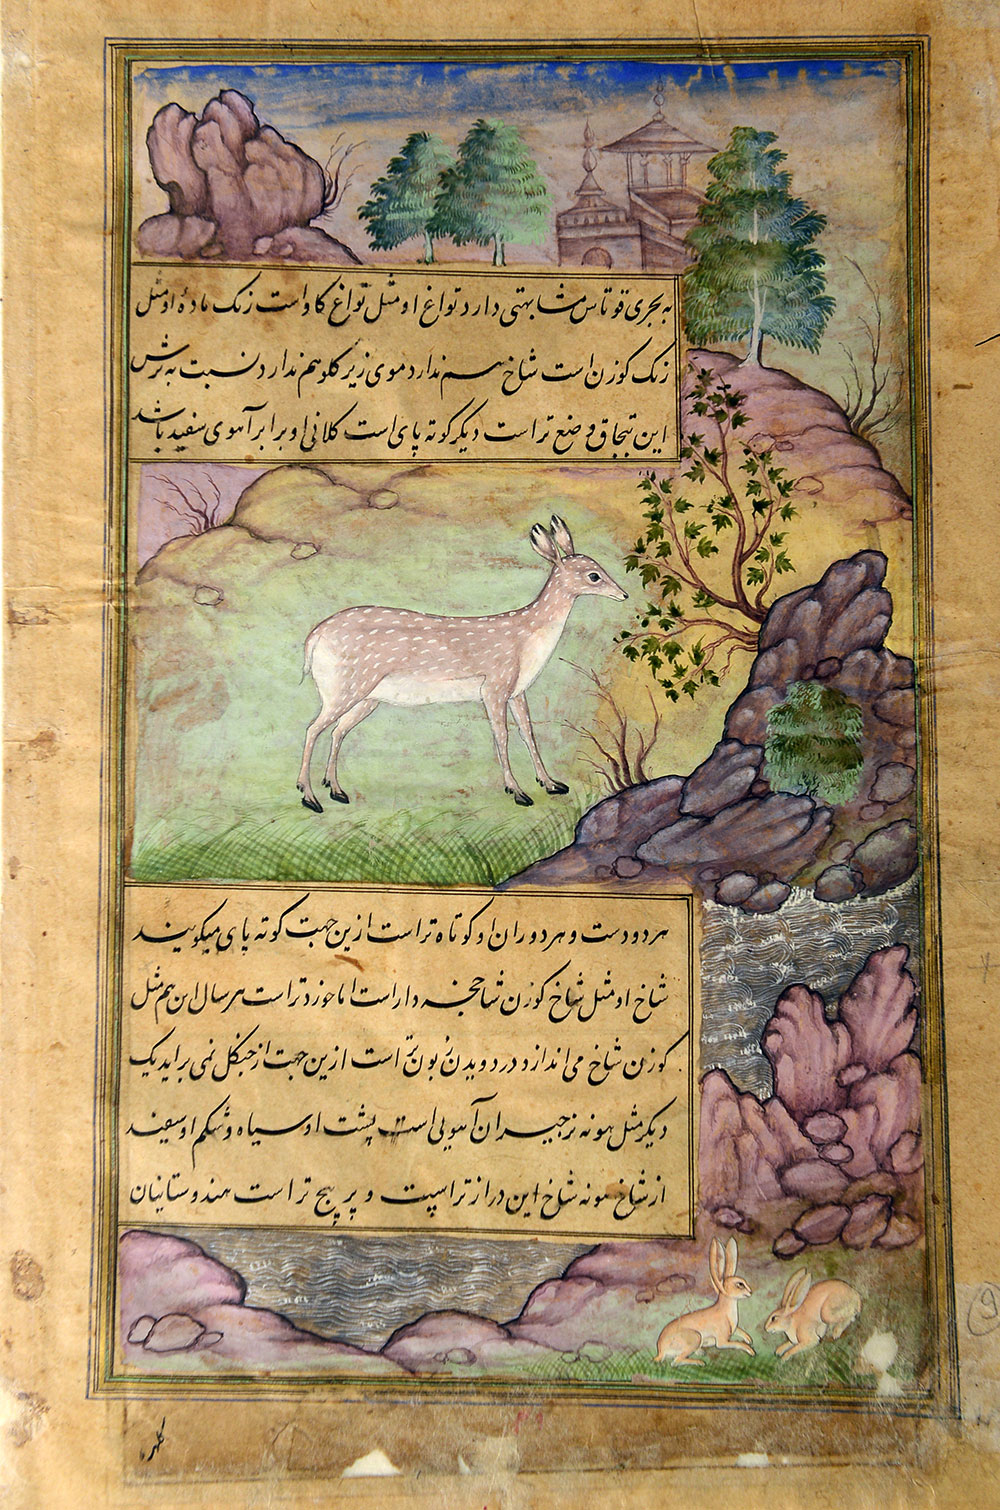 به بحری قوتاس مشابهتی دارد تواغ او مثل تواغ کاو است رنک مادهٔ او مثل
رنک کوزن است شاخ هم ندارد موی زیر کلو هم ندارد نسبت به نرش
این تبجاق وضع تر است دیکر کوته پای است کلانی او برابر آهوی سفید باشد
هر دو دست و هر دو ران او کوتاه تر است ازین جهت کوته پای میکویند
شاخ او مثل شاخ کوزن شاخچه دار است اما خورد تر است هر سال این هم مثل
کوزن شاخ می اندازد در دویدن بونه است ازین جهت از جنکل نمی براید یک
دیکر مثل هونه نر جیران آهویی است پشت او سیاه و شکم او سفید
از شاخ هونه شاخ این دراز تر است و پر پیچ تر است هندوستانیان